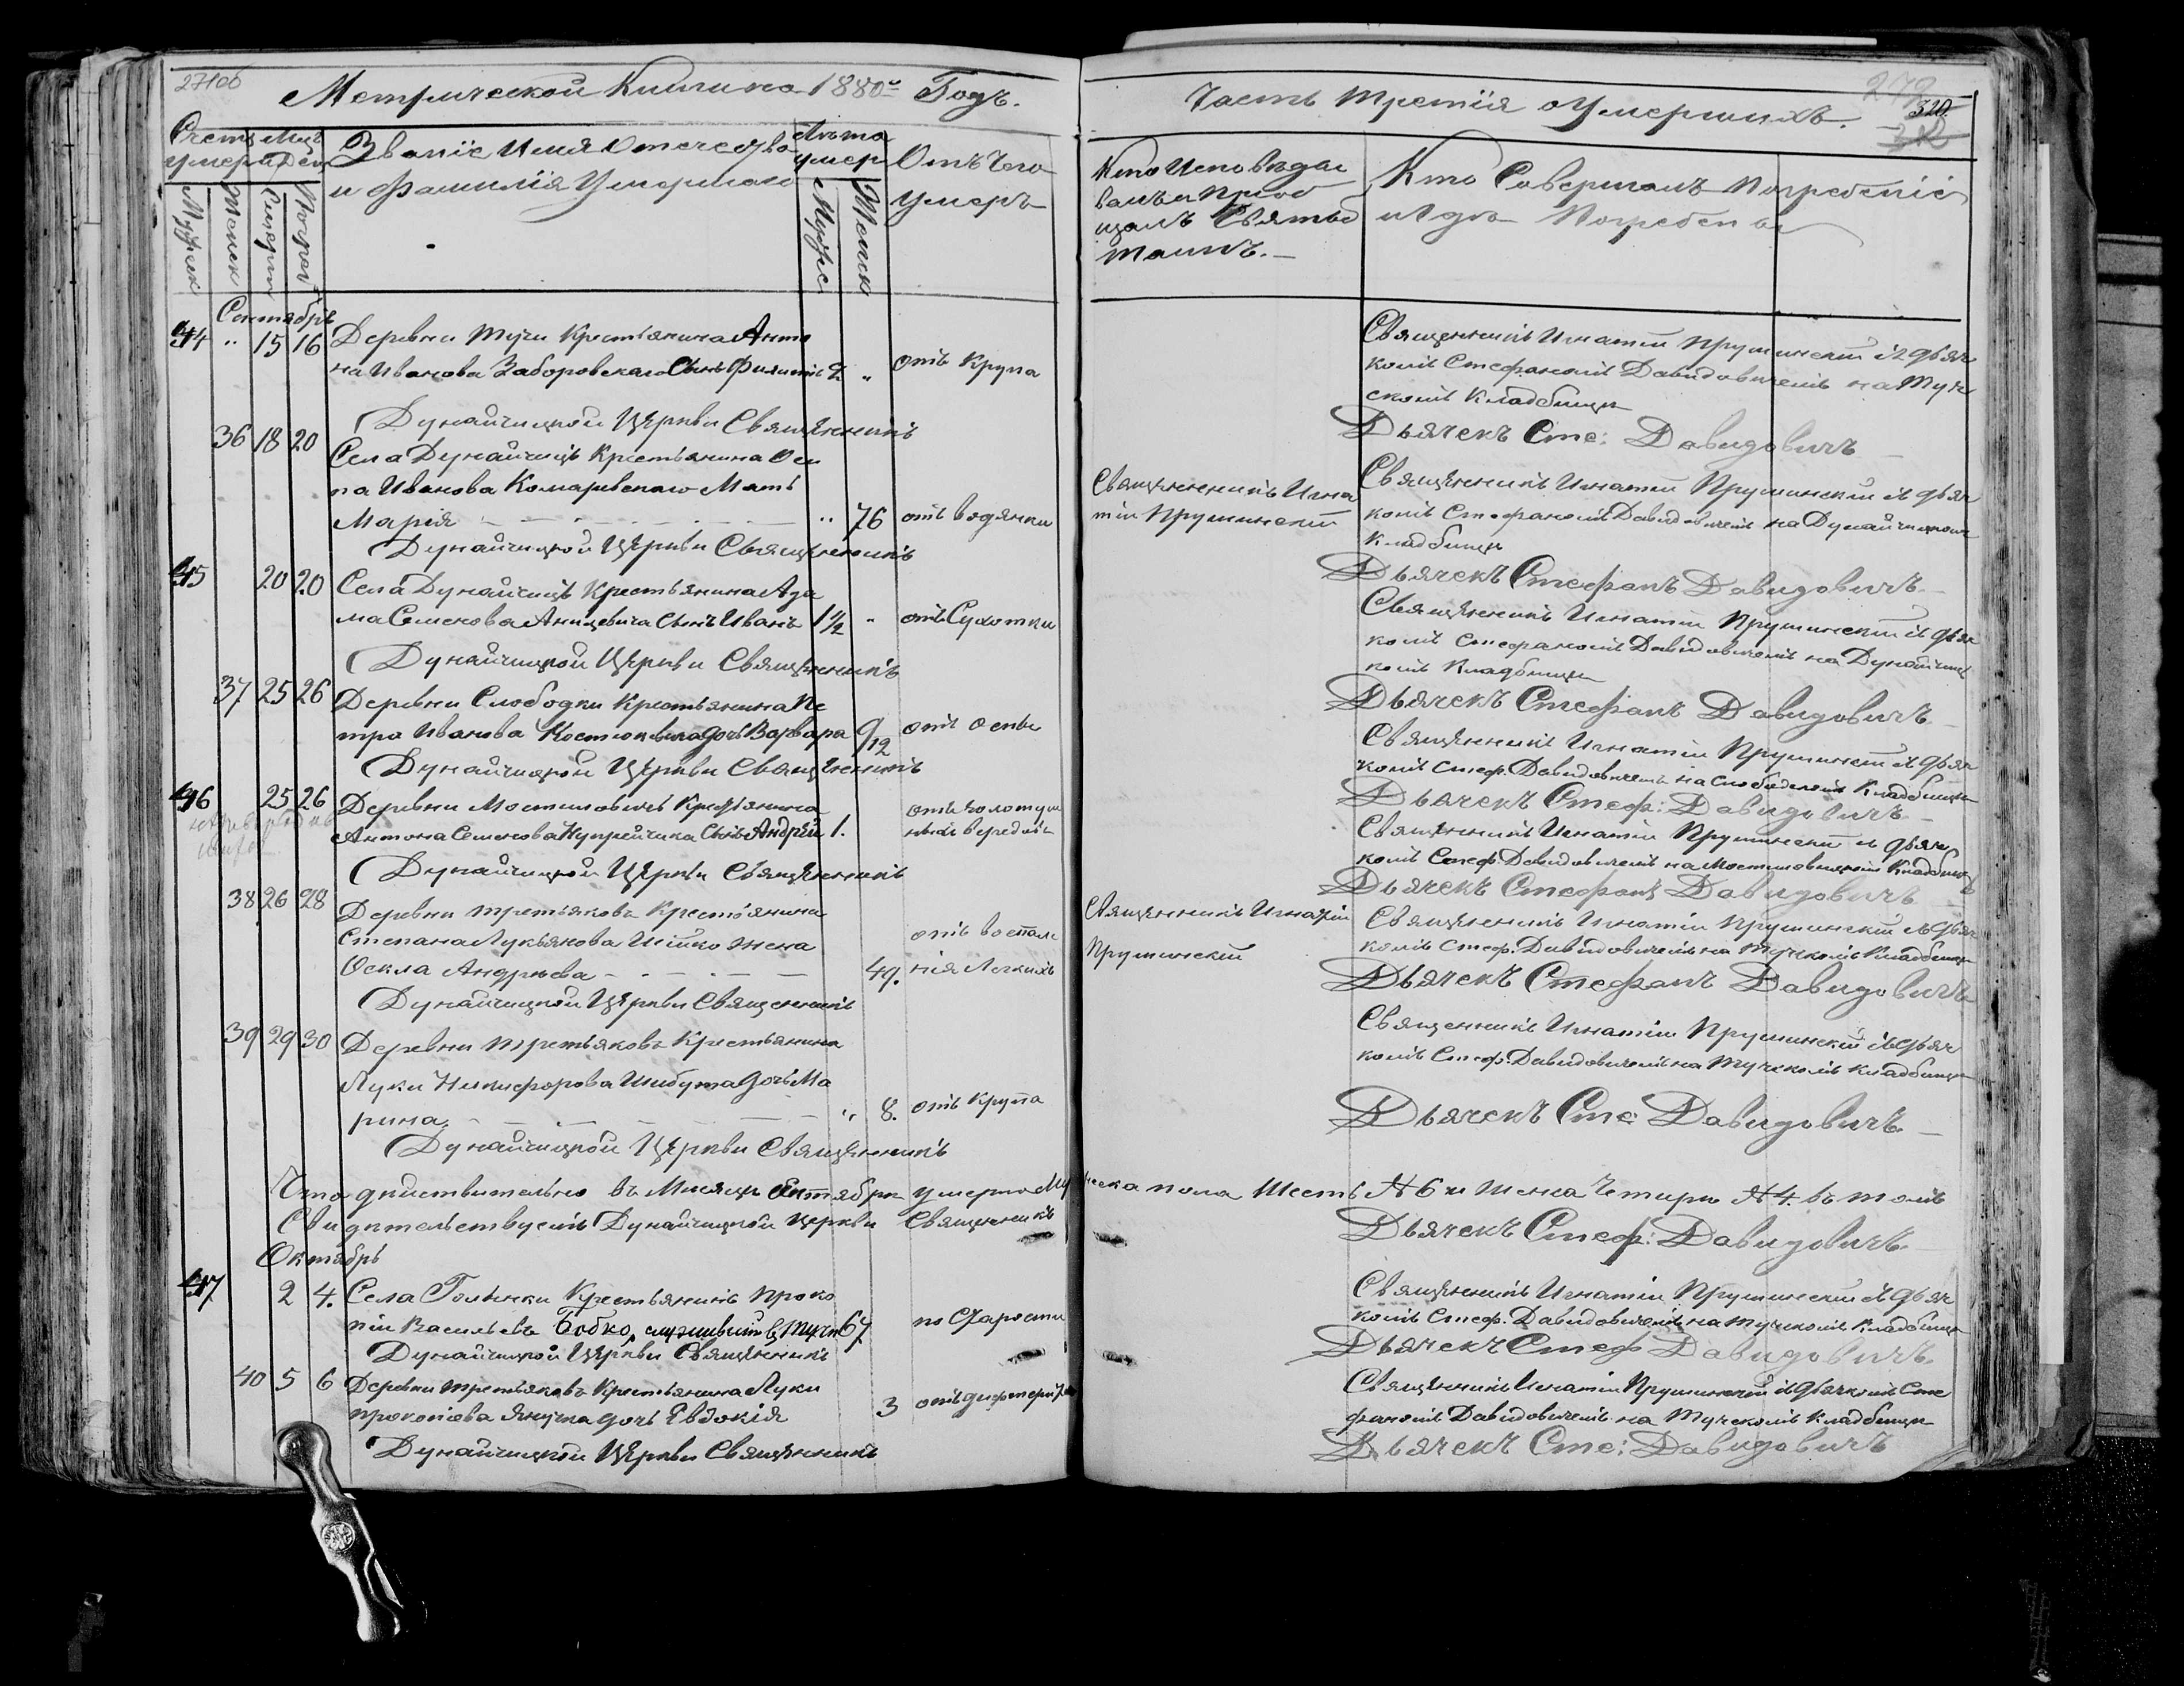 271об
Метрической Книги на 1880й Годъ.
Счетъ умер. Мцъ и День
Званіе Имя Отечество
и Фамилія Умершаго
Лѣта умер
Отъ Чего
умеръ
Мужеск
Женск
Смерти
Погреб
Мужс
Женск
Сентябрь
44 " 15 16 Деревни Тучи Крестьянина Анто
на Иванова Заборовскаго Сынъ Филипъ 2 " отъ Крупа
Дунайчицкой Церкви Священникъ
36 18 20
Села Дунайчицъ Крестьянина Оси
па Иванова Комаревскаго Мать
Марія " 76 отъ водянки
Дунайчицкой Церкви Священникъ
45 20 20 Села Дунайчицъ Крестьянина Ада
ма Семенова Аницевича Сынъ Иванъ 1½ " отъ Сухотки
Дунайчицкой Церкви Священникъ
37 25 26 Деревни Слободки Крестьянина Пе
тра Иванова Костюкевича дочь Варвара 9/12 отъ Оспы
Дунайчицкой Церкви Священникъ
46 25 26 Деревни Мостиловичъ Крестьянина
Антона Семенова Купрейчика Сынъ Андрей 1.
Дунайчицкой Церкви Священникъ
38 26 28
Деревни Третьяковъ Крестьянина
Степана Лукьянова Шишко жена
Ѳекла Андрѣева 49. отъ воспале
нія Легкихъ
Дунайчицкой Церкви Священникъ
39 29 30 Деревни Третьяковъ Крестьянина
Луки Никифорова Шибута дочь Ма
рина. " 8. отъ Крупа
Дунайчицкой Церкви Священникъ
Что дѣйствительно въ Мѣсяцѣ Сентябрѣ умерло Му
Свидѣтельствуемъ Дунайчицкой Церкви Священникъ
Октябрь
47 2 4. Села Голынки Крестьянинъ Проко
пій Васильевъ Бобко, служившій в Тучѣ 67 по Старости
Дунайчицкой Церкви Священникъ
40 5 6 Деревни Третьяковъ Крестьянина Луки
Прокопова Янута дочь Евдокія 3 отъ дифтерита
Дунайчицкой Церкви Священникъ
Часть Третія о Умершихъ.
320
Кто Исповѣды
валъ и Пріоб
щалъ Святыхъ
Таинъ.
Кто Совершалъ Погребеніе
и Гдѣ Погребены
Священникъ Игнатій Прушинскій съ дьяч
комъ Стефаномъ Давидовичемъ на Туч
скомъ Кладбищѣ
Дьячекъ Сте: Давидовичъ
Священникъ Игна
тій Прушинскій
Священникъ Игнатій Прушинскій съ дьяч
комъ Стефаномъ Давидовичемъ на Дунайчицкомъ
Кладбищѣ
Дьячекъ Стефанъ Давидовичъ
Священникъ Игнатій Прушинскій съ дьяч
комъ Стефаномъ Давидовичемъ на Дунайчиц
комъ Кладбищѣ
Дьячекъ Стефанъ Давидовичъ
Священникъ Игнатій Прушинскій съ дьяч
комъ Стеф. Давидовичемъ на Слободскомъ Кладбищѣ
Дьячекъ Стеф: Давидовичъ
Священникъ Игнатій Прушинскій съ дьяч
комъ Стеф. Давидовичемъ на Мостиловицкомъ Кладбищѣ
Дьячекъ Стефанъ Давидовичъ
Священникъ Игнатій
Прушинскій
Священникъ Игнатій Прушинскій съ дьяч
комъ Стеф. Давидовичемъ на Тучскомъ Кладбищѣ
Дьячекъ Стефанъ Давидовичъ
Священникъ Игнатій Прушинскій съ дьяч
комъ Стеф. Давидовичемъ на Тучскомъ Кладбищѣ
Дьячекъ Сте: Давидовичъ
жеска пола Шесть №6 и Женска Четыре №4. въ томъ
Дьячекъ Стеф: Давидовичъ
Священникъ Игнатій Прушинскій съ дьяч
комъ Стеф. Давидовичемъ на Тучскомъ Кладбищѣ
Дьячекъ Стеф Давидовичъ
Священникъ Игнатій Прушинскій съ дьячкомъ Сте
фаномъ Давидовичемъ на Тучскомъ Кладбищѣ
Дьячекъ Сте: Давидовичъ